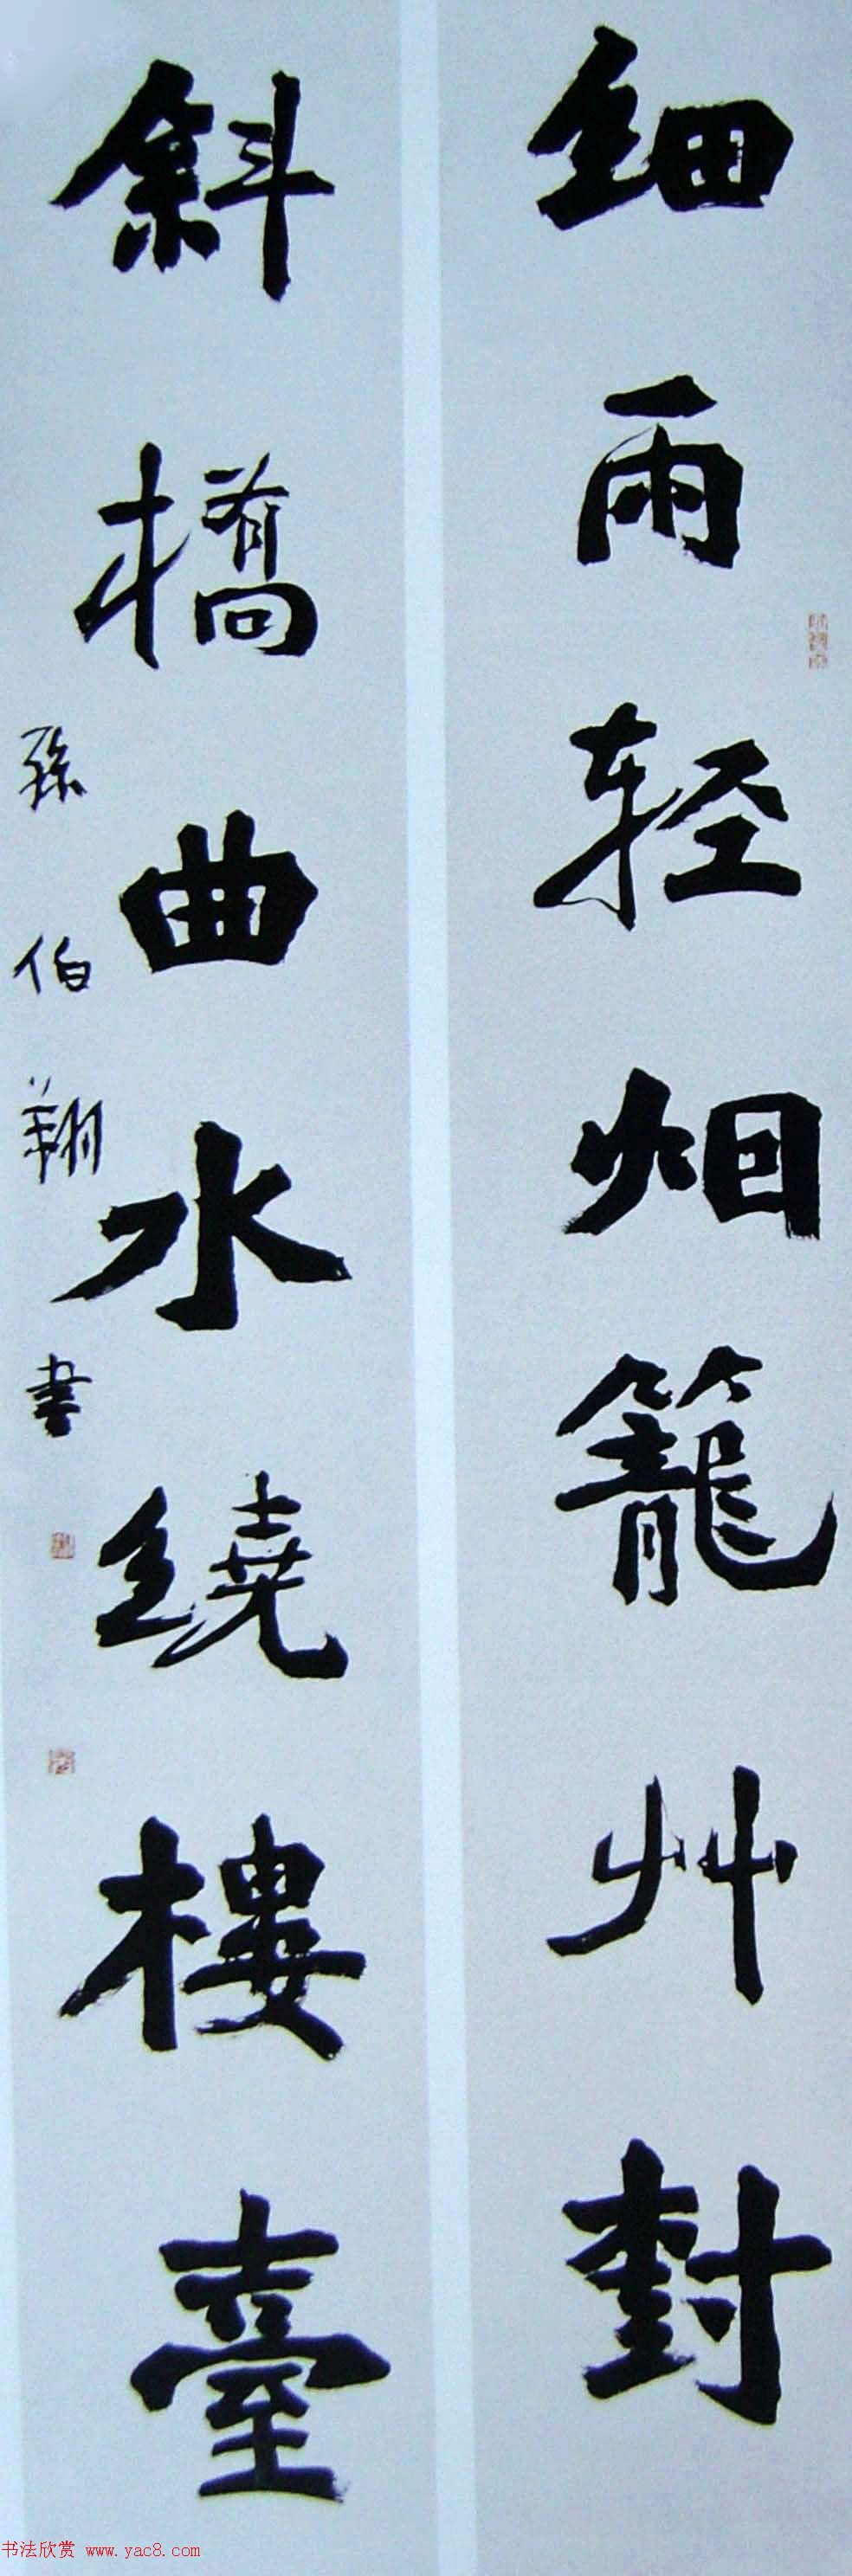 細雨轻烟籠艸樹
斜橋曲水繞樓臺
孫伯翔書
书法欣赏 www.yac8.com